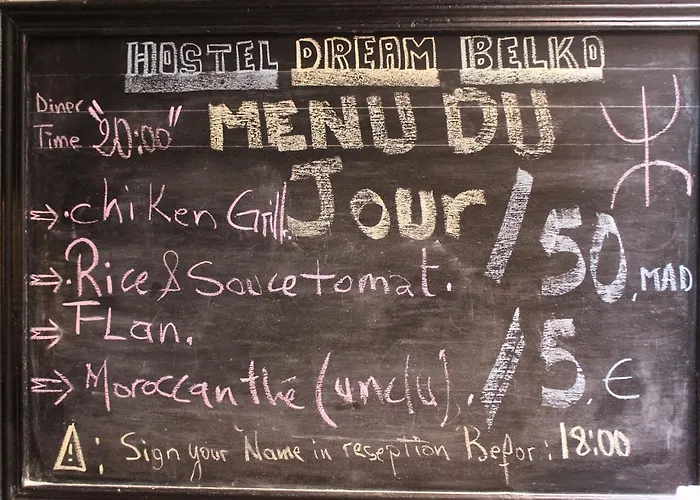 HOSTEL DREAM BELKO
Diner
Time "20:00"
MENU DU
Jour
chiKen Grill.
Rice & Souce tomat.
/50, MAD
FLan.
Moroccan thé (unclu).
/5. €
⚠: Sign your Name in reseption Befor: 18:00